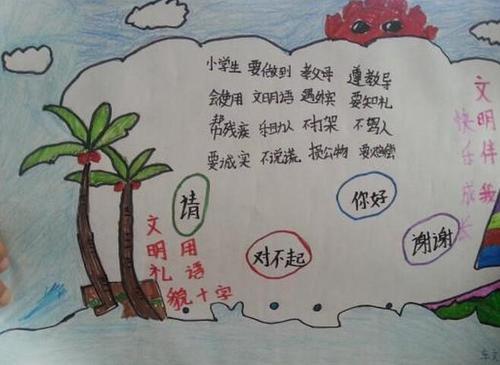 小学生 要做到 敬父母 遵教导
会使用 文明语 遇外宾 要知礼
帮残疾 乐助人 不打架 不骂人
要诚实 不说谎 损公物 要赔偿
文明伴我
快乐成长
请
你好
对不起
谢谢
文明礼貌
用语十字